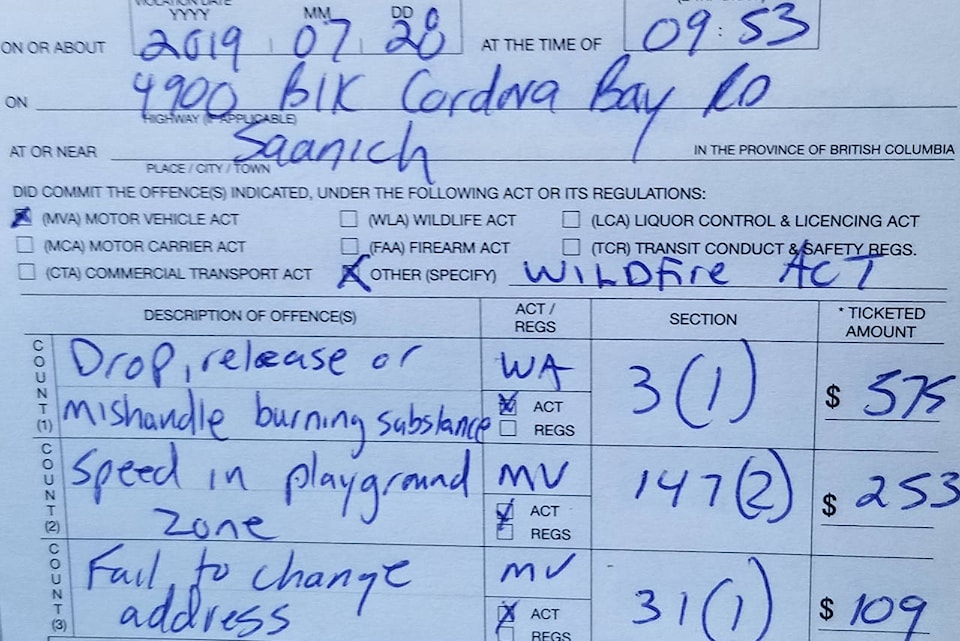 VIOLATION DATE
YYYY MM DD
ON OR ABOUT 2019 07 20 AT THE TIME OF 09:53
ON 4900 Blk Cordova Bay RD
HIGHWAY (IF APPLICABLE)
AT OR NEAR Saanich IN THE PROVINCE OF BRITISH COLUMBIA
PLACE / CITY / TOWN
DID COMMIT THE OFFENCE(S) INDICATED, UNDER THE FOLLOWING ACT OR ITS REGULATIONS:
(MVA) MOTOR VEHICLE ACT (WLA) WILDLIFE ACT (LCA) LIQUOR CONTROL & LICENCING ACT
(MCA) MOTOR CARRIER ACT (FAA) FIREARM ACT (TCR) TRANSIT CONDUCT & SAFETY REGS.
(CTA) COMMERCIAL TRANSPORT ACT OTHER (SPECIFY) WILDFire ACT
DESCRIPTION OF OFFENCE(S) ACT / REGS SECTION * TICKETED AMOUNT
COUNT (1) Drop, release or WA 3(1) $ 575
mishandle burning substance ACT
REGS
COUNT (2) Speed in playground MV 147(2) $ 253
zone ACT
REGS
COUNT (3) Fail to change MV 31(1) $ 109
address ACT
REGS